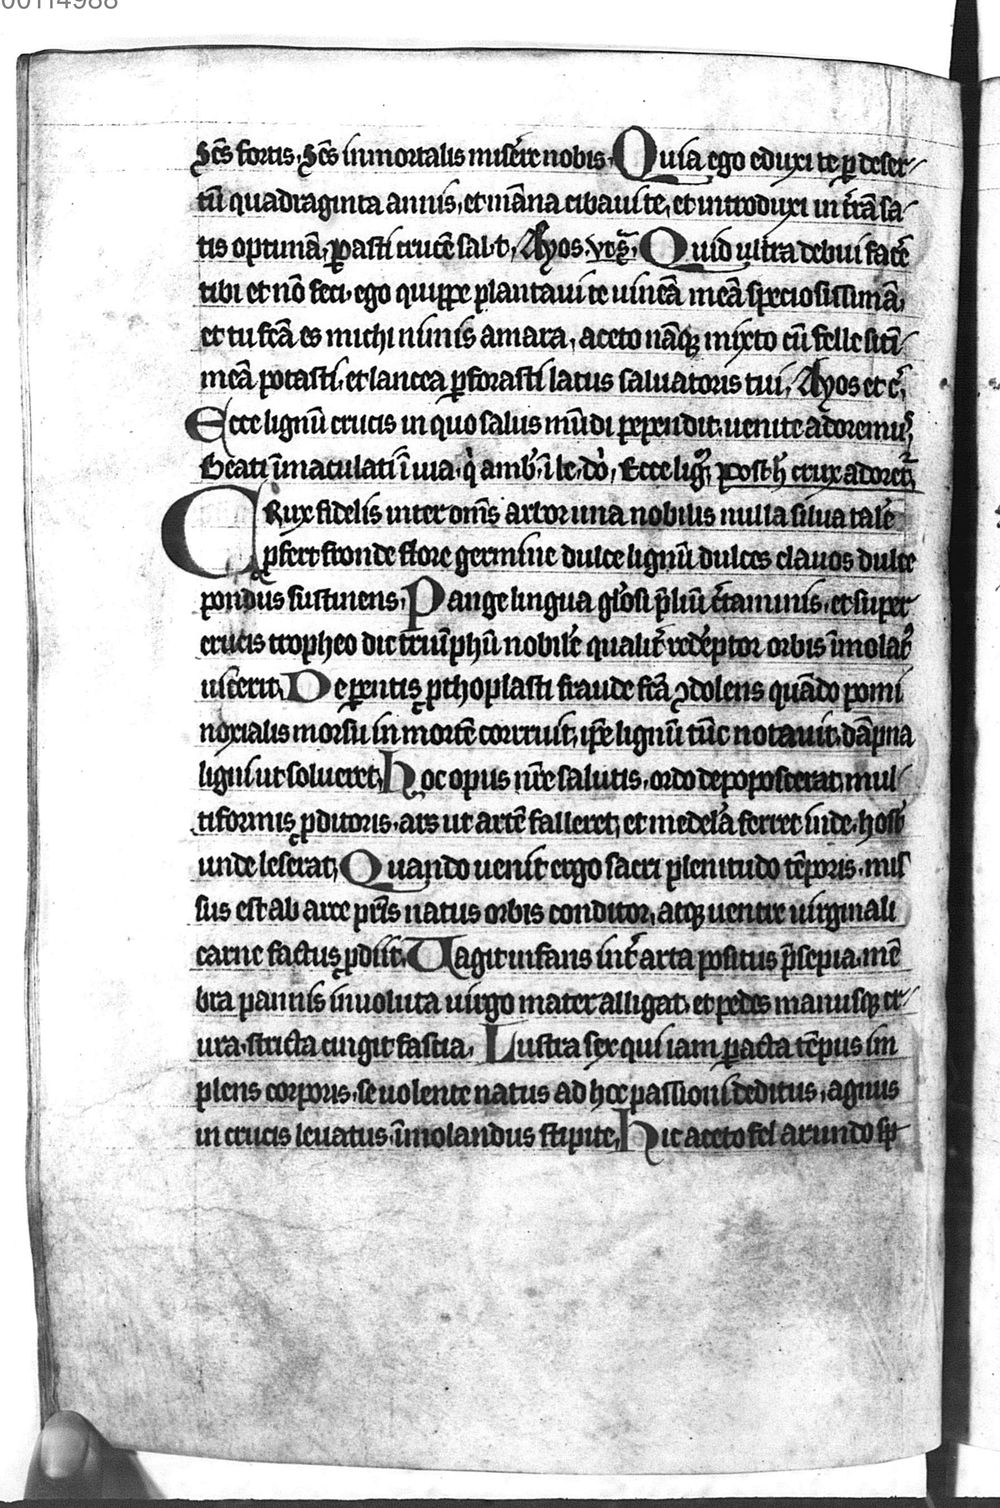 00114988
Sc̄s fortis, Sc̄s inmortalis misēre nobis. Quia ego eduxi te ꝑ deser-
tū quadraginta annis, et māna cibaui te, et introduxi in t̄rā sa-
tis optimā, ꝑasti crucē salꝰ t. Ayos. Quid ultra debui facē
tibi et nō feci, ego quippe plantaui te uineā meā speciosissimā,
et tu fc̄a es michi nimis amara, aceto nāqꝫ mixto cū felle sitī
meā potasti, et lancea ꝑforasti latus saluatoris tui, Ayos et c̄.
Ecce lignū crucis in quo salus mūdi pependit, uenite adoremꝰ,
Beati īmaculati ī uia, q̄ amb̄. ī le. dō, Ecce liḡ, post h̄ crux adoret̄,
CRux fidelis inter om̄s arbor una nobilis nulla silua talē
ꝓfert fronde flore germine dulce lignū dulces clauos dulce
pondus sustinens, Pange lingua glōsi p̄liū c̄taminis, et super
crucis tropheo dic triūphū nobilē qualit̄ redēptor orbis īmolatꝰ
uicerit, De ꝑentis ꝓthoplasti fraude fc̄a ꝯdolens quādo pomi
noxialis morsu in mortē corruit, ip̄e lignū tūc notauit, dāpna
ligni ut solueret, Hoc opus nr̄e salutis, ordo depoposcerat, mul-
tiformis ꝑditoris, ars ut artē falleret, et medelā ferret inde, hostꝭ
unde leserat, Quando uenit ergo sacri plenitudo tēporis, mis
sus est ab arce pr̄is natus orbis conditor, atqꝫ uentre uirginali
carne factus ꝓdiit, Uagit infans int̄ arta positus p̄sepia, mē
bra pannis inuoluta uirgo mater alligat, et pedes manusqꝫ cr-
ura, stricta cingit fascia, Lustra sex qui iam ꝑacta tēpus im
plens corporis, se uolente natus ad hoc passioni deditus, agnus
in crucis leuatus, īmolandus stipite, Hic aceto fel arundo sp